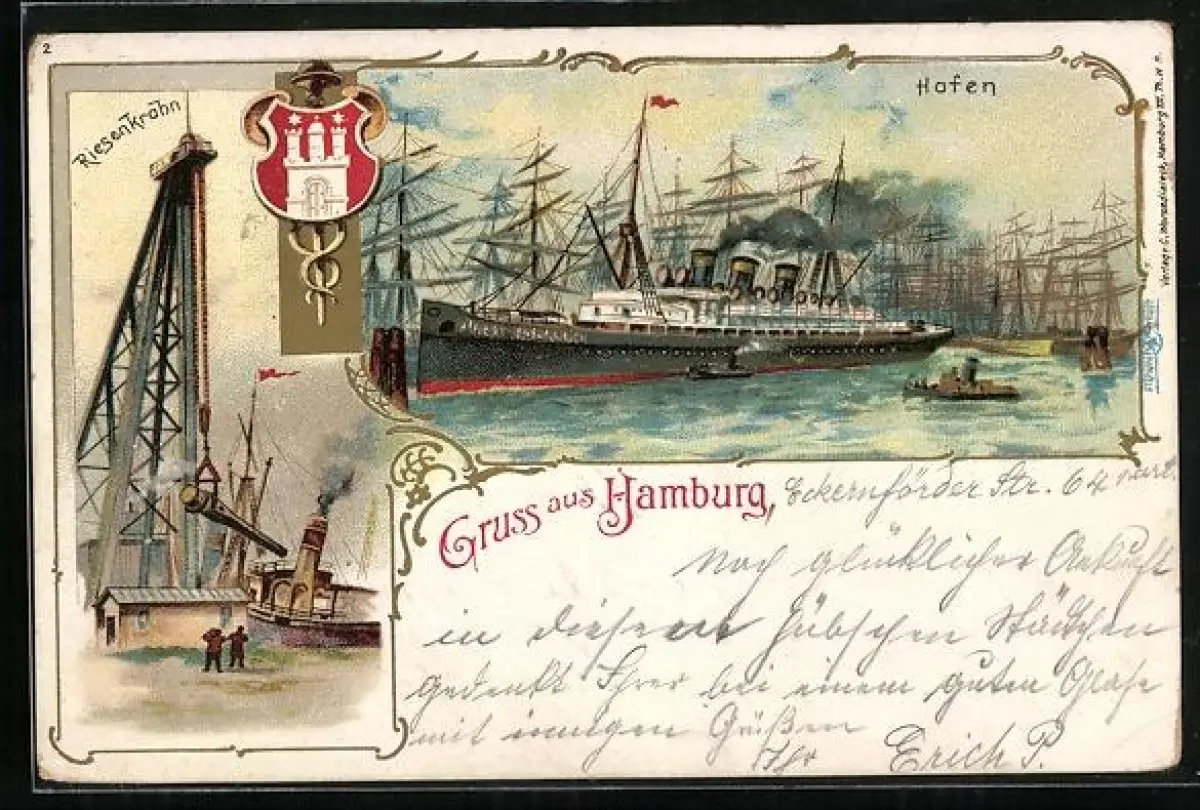 2
Riesenkrahn
Hafen
Gruss aus Hamburg, Eckernförder Str. 64 part.
Nach glücklicher Ankunft
in diesem hübschen Städtchen
gedenkt Ihrer bei einem guten Glase
mit innigen Grüßen
Ihr Erich P.